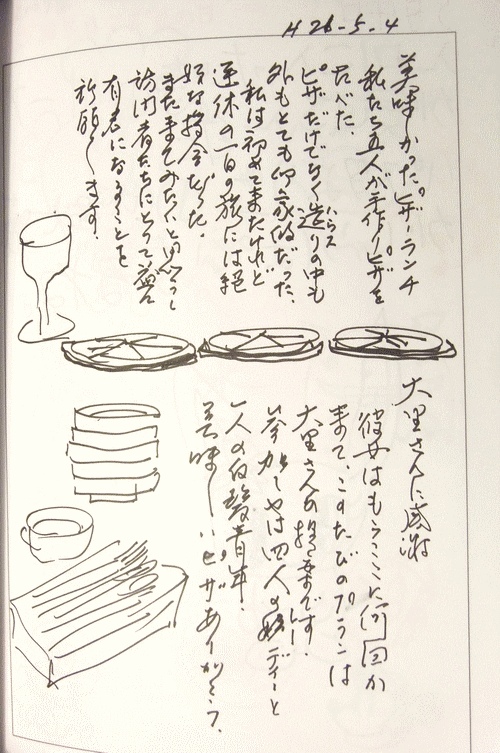 H26-5-4
美味しかったピザーランチ
私たち五人が手作りピザを
食べた。
ピザだけでなく造りの中も
ハウス
外もとても印象的だった、
私は初めて来たけれど
連休の一日の旅には絶
好な場合だった。
また来てみたいと思うし
訪問者たちにとって益々
有名になることを
祈願します。
大里さんに感謝
彼女はもうここに何回か
来て、このたびのプランは
大里さんの提案です。
参加しゃは四人の レディーと
一人の白髪青年、
美味しいピザありがとう、